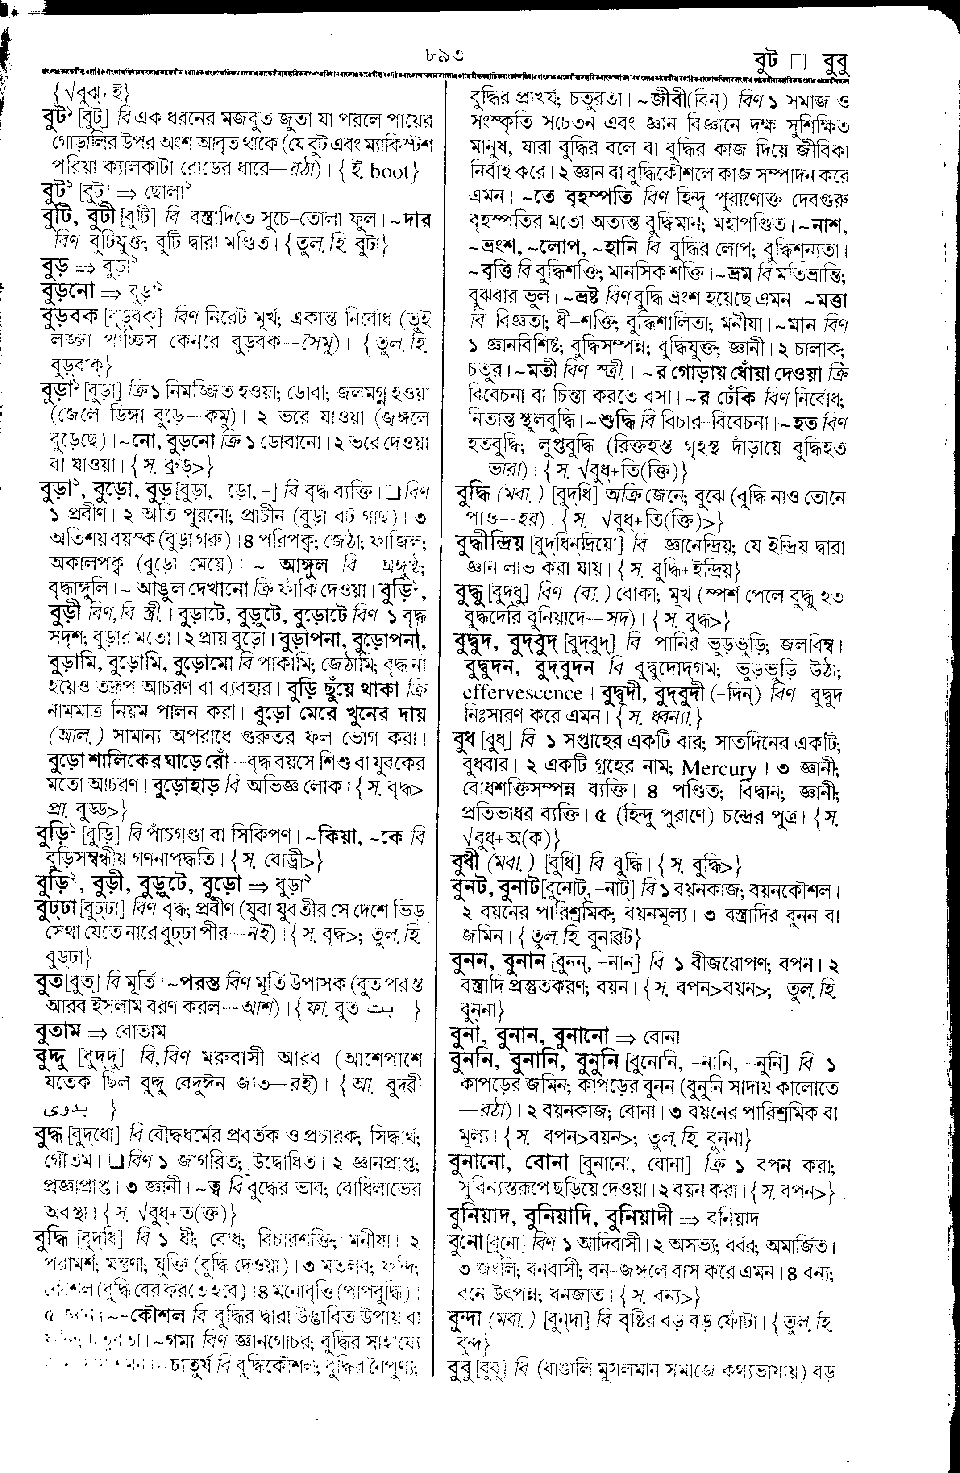 ৮৯৩
বুট □ বুবু
{√বুঝ্+ই}
বুট১ [বুট্] বি এক ধরনের মজবুত জুতা যা পরলে পায়ের
গোড়ালির উপর অংশ আবৃত থাকে (যে বুট এবং ম্যাকিন্টশ
পরিয়া ক্যালকাটা রোডের ধারে—রঠা)। {ই. boot}
বুট২ [বুট্] ⇒ ছোলা
বুটি, বুটী [বুটি] বি বস্ত্রাদিতে সূচে-তোলা ফুল। ~দার
বিণ বুটিযুক্ত; বুটি দ্বারা মণ্ডিত। {তুল. হি. বুটা}
বুড় ⇒ বুড়া২
বুড়নো ⇒ বুড়া১
বুড়বক [বুড়্‌বক্] বিণ নিরেট মূর্খ; একান্ত নির্বোধ (তুই
লজ্জা পাচ্ছিস কেনরে বুড়বক—সৈমু)। {তুল. হি.
বুড়বক}
বুড়া১ [বুড়া] ক্রি ১ নিমজ্জিত হওয়া; ডোবা; জলমগ্ন হওয়া
(জেলে ডিঙ্গা বুড়ে—কমু)। ২ ভরে যাওয়া (জঙ্গলে
বুড়েছে)। ~নো, বুড়নো ক্রি ১ ডোবানো। ২ ভরে দেওয়া
বা যাওয়া। {স. ব্রুড>}
বুড়া২, বুড়ো, বুড় [বুড়া, –ড়ো, –] বি বৃদ্ধ ব্যক্তি। □ বিণ
১ প্রবীণ। ২ অতি পুরনো; প্রাচীন (বুড়া বট গাছ)। ৩
অতিশয় বয়স্ক (বুড়া গরু)। ৪ পরিপক্ব; জেঠা; ফাজিল;
অকালপক্ব (বুড়ো মেয়ে)। ~ আঙ্গুল বি অঙ্গুষ্ঠ;
বৃদ্ধাঙ্গুলি। ~ আঙুল দেখানো ক্রি ফাঁকি দেওয়া। বুড়ি১,
বুড়ী বিণ, বি স্ত্রী.। বুড়াটে, বুড়ুটে, বুড়োটে বিণ ১ বৃদ্ধ
সদৃশ; বুড়ার মতো। ২ প্রায় বুড়ো। বুড়াপনা, বুড়োপনা,
বুড়ামি, বুড়োমি, বুড়োমো বি পাকামি; জেঠামি; বৃদ্ধ না
হয়েও তদ্রূপ আচরণ বা ব্যবহার। বুড়ি ছুঁয়ে থাকা ক্রি
নামমাত্র নিয়ম পালন করা। বুড়ো মেরে খুনের দায়
(আল.) সামান্য অপরাধে গুরুতর ফল ভোগ করা।
বুড়ো শালিকের ঘাড়ে রোঁ—বৃদ্ধ বয়সে শিশু বা যুবকের
মতো আচরণ। বুড়োহাড় বি অভিজ্ঞ লোক। {স. বৃদ্ধ>
প্রা. বুড্ড>}
বুড়ি২ [বুড়ি] বি পাঁচগণ্ডা বা সিকিপণ। ~কিয়া, ~কে বি
বুড়িসম্বন্ধীয় গণনাপদ্ধতি। {স. বোড্রী>}
বুড়ি১, বুড়ী, বুড়ুটে, বুড়ো ⇒ বুড়া২
বুঢ্ঢা [বুঢ্‌ঢা] বিণ বৃদ্ধ; প্রবীণ (যুবা যুবতীর সে দেশে ভিড়
সেথা যেতে নারে বুঢ্ঢা পীর—নই)। {স. বৃদ্ধ>; তুল. হি.
বুড্‌ঢা}
বুত [বুত্] বি মূর্তি। ~পরস্ত বিণ মূর্তি উপাসক (বুত পরস্ত
আরব ইসলাম বরণ করল—আশ)। {ফা. বুত بت }
বুতাম ⇒ বোতাম
বুদ্দু [বুদ্‌দু] বি, বিণ মরুবাসী আরব (আশেপাশে
যতেক ছিল বুদ্দু বেদুঈন জাত—রই)। {আ. বুদবী
بدوى }
বুদ্ধ [বুদ্‌ধো] বি বৌদ্ধধর্মের প্রবর্তক ও প্রচারক; সিদ্ধার্থ;
গৌতম। □ বিণ ১ জাগরিত; উদ্বোধিত। ২ জ্ঞানপ্রাপ্ত;
প্রজ্ঞাপ্রাপ্ত। ৩ জ্ঞানী। ~ত্ব বি বুদ্ধের ভাব; বোধিলাভের
অবস্থা। {স. √বুধ্+ত(ক্ত)}
বুদ্ধি [বুদ্‌ধি] বি ১ ধী; বোধ; বিচারশক্তি; মনীষা। ২
পরামর্শ; মন্ত্রণা; যুক্তি (বুদ্ধি দেওয়া)। ৩ মতলব; ফন্দি;
কৌশল (বুদ্ধি বের করতে হবে)। ৪ মনোবৃত্তি (পাপবুদ্ধি)।
৫ জ্ঞান। ~কৌশল বি বুদ্ধির দ্বারা উদ্ভাবিত উপায় বা
~গম্য বিণ জ্ঞানগোচর; বুদ্ধির সাহায্যে
~চাতুর্য বি বুদ্ধিকৌশল; বুদ্ধির নৈপুণ্য;
বুদ্ধির প্রাখর্য; চতুরতা। ~জীবী(বিন্) বিণ ১ সমাজ ও
সংস্কৃতি সচেতন এবং জ্ঞান বিজ্ঞানে দক্ষ সুশিক্ষিত
মানুষ, যারা বুদ্ধির বলে বা বুদ্ধির কাজ দিয়ে জীবিকা
নির্বাহ করে। ২ জ্ঞান বা বুদ্ধিকৌশলে কাজ সম্পাদন করে
এমন। ~তে বৃহস্পতি বিণ হিন্দু পুরাণোক্ত দেবগুরু
বৃহস্পতির মতো অত্যন্ত বুদ্ধিমান; মহাপণ্ডিত। ~নাশ,
~ভ্রংশ, ~লোপ, ~হানি বি বুদ্ধির লোপ; বুদ্ধিশূন্যতা।
~বৃত্তি বি বুদ্ধিশক্তি; মানসিক শক্তি। ~ভ্রম বি মতিভ্রান্তি;
বুঝবার ভুল। ~ভ্রষ্ট বিণ বুদ্ধি ভ্রংশ হয়েছে এমন। ~মত্তা
বি বিজ্ঞতা; ধী-শক্তি; বুদ্ধিশালিতা; মনীষা। ~মান বিণ
১ জ্ঞানবিশিষ্ট; বুদ্ধিসম্পন্ন; বুদ্ধিযুক্ত; জ্ঞানী। ২ চালাক;
চতুর। ~মতী বিণ স্ত্রী.। ~র গোড়ায় ধোঁয়া দেওয়া ক্রি
বিবেচনা বা চিন্তা করতে বসা। ~র ঢেঁকি বিণ নির্বোধ;
নিতান্ত স্থূলবুদ্ধি। ~শুদ্ধি বি বিচার-বিবেচনা। ~হত বিণ
হতবুদ্ধি; লুপ্তবুদ্ধি (রিক্তহস্ত গৃহস্থ দাঁড়ায়ে বুদ্ধিহত
ভারা)। {স. √বুধ্+তি(ক্তি)}
বুদ্ধি (মবা.) [বুদ্‌ধি] অক্রি জেনে; বুঝে (বুদ্ধি নাও তোনে
পাও—হর)। {স. √বুধ+তি(ক্তি)>}
বুদ্ধীন্দ্রিয় [বুদ্‌ধিন্‌দ্রিয়ো] বি জ্ঞানেন্দ্রিয়; যে ইন্দ্রিয় দ্বারা
জ্ঞান লাভ করা যায়। {স. বুদ্ধি+ইন্দ্রিয়}
বুদ্ধু [বুদ্‌ধু] বিণ (ব্য.) বোকা; মূর্খ (স্পর্শ পেলে বুদ্ধু হও
বুদ্ধদেরি বুনিয়াদে—সদ)। {স. বুদ্ধ>}
বুদ্বুদ, বুদ্‌বুদ্ [বুদ্‌বুদ্] বি পানির ভুড়ভুড়ি; জলবিম্ব।
বুদ্বুদন, বুদ্‌বুদন বি বুদ্বুদোদগম; ভুড়ভুড়ি উঠা;
effervescence। বুদ্বুদী, বুদ্‌বুদী (–দিন্) বিণ বুদ্বুদ
নিঃসারণ করে এমন। {স. ধ্বন্যা.}
বুধ [বুধ্] বি ১ সপ্তাহের একটি বার; সাতদিনের একটি;
বুধবার। ২ একটি গ্রহের নাম; Mercury। ৩ জ্ঞানী;
বোধশক্তিসম্পন্ন ব্যক্তি। ৪ পণ্ডিত; বিদ্বান; জ্ঞানী;
প্রতিভাধর ব্যক্তি। ৫ (হিন্দু পুরাণে) চন্দ্রের পুত্র। {স.
√বুধ্+অ(ক)}
বুধী (মবা.) [বুধি] বি বুদ্ধি। {স. বুদ্ধি>}
বুনট, বুনাট [বুনোট্, –নাট্] বি ১ বয়নকাজ; বয়নকৌশল।
২ বয়নের পারিশ্রমিক; বয়নমূল্য। ৩ বস্ত্রাদির বুনন বা
জমিন। {তুল. হি. বুনাৱট}
বুনন, বুনান [বুনন্, –নান্] বি ১ বীজরোপণ; বপন। ২
বস্ত্রাদি প্রস্তুতকরণ; বয়ন। {স. বপন>বয়ন>; তুল. হি.
বুননা}
বুনা, বুনান, বুনানো ⇒ বোনা
বুননি, বুনানি, বুনুনি [বুনোনি, –নানি, –নুনি] বি ১
কাপড়ের জমিন; কাপড়ের বুনন (বুনুনি সাদায় কালোতে
—রঠা)। ২ বয়নকাজ; বোনা। ৩ বয়নের পারিশ্রমিক বা
মূল্য। {স. বপন>বয়ন>; তুল. হি. বুননা}
বুনানো, বোনা [বুনানো, বোনা] ক্রি ১ বপন করা;
সুবিন্যস্তরূপে ছড়িয়ে দেওয়া। ২ বয়ন করা। {স. বপন>}
বুনিয়াদ, বুনিয়াদি, বুনিয়াদী ⇒ বনিয়াদ
বুনো [বুনো] বিণ ১ আদিবাসী। ২ অসভ্য; বর্বর; অমার্জিত।
৩ জংলি; বনবাসী; বন-জঙ্গলে বাস করে এমন। ৪ বন্য;
বনে উৎপন্ন; বনজাত। {স. বন্য>}
বুন্দা (মবা.) [বুন্‌দা] বি বৃষ্টির বড় বড় ফোঁটা। {তুল. হি.
বুন্দ}
বুবু [বুবু] বি (বাঙালি মুসলমান সমাজে কথ্যভাষায়) বড়